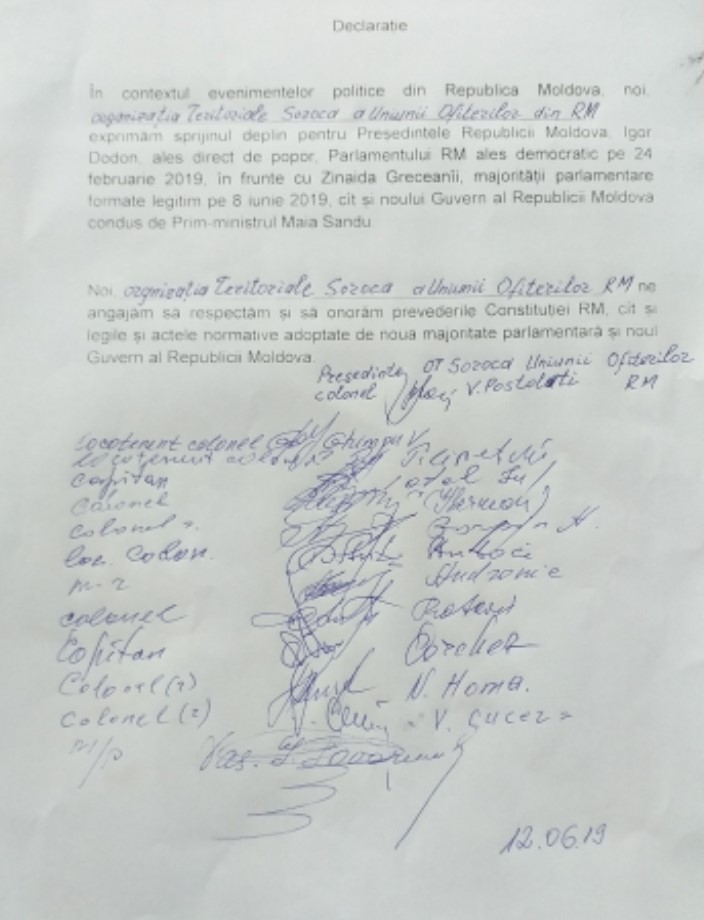 Declarație
În contextul evenimentelor politice din Republica Moldova, noi,
organizația Teritoriale Soroca a Uniunii Ofițerilor din RM
exprimăm sprijinul deplin pentru Președintele Republicii Moldova, Igor
Dodon, ales direct de popor, Parlamentului RM ales democratic pe 24
februarie 2019, în frunte cu Zinaida Greceanîi, majorității parlamentare
formate legitim pe 8 iunie 2019, cît si noului Guvern al Republicii Moldova
condus de Prim-ministrul Maia Sandu.
Noi, organizația Teritoriale Soroca a Uniunii Ofițerilor RM ne
angajăm să respectăm și să onorăm prevederile Constitutiei RM, cît si
legile și actele normative adoptate de noua majoritate parlamentară și noul
Guvern al Republicii Moldova.
Președinte OT Soroca Uniunii Ofițerilor
colonel V. Postolati RM
locotenent colonel Ghimpu V
locotenent colonel
Capitan
Colonel
Colonel
loc. Colon.
Andronic
colonel Rotari
Capitan
Colonel (r) N. Homa.
Colonel (r) V. Cucer
12.06.19